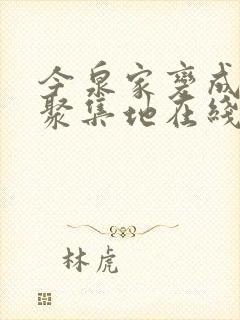 今泉家变成
聚集地在线
林虎